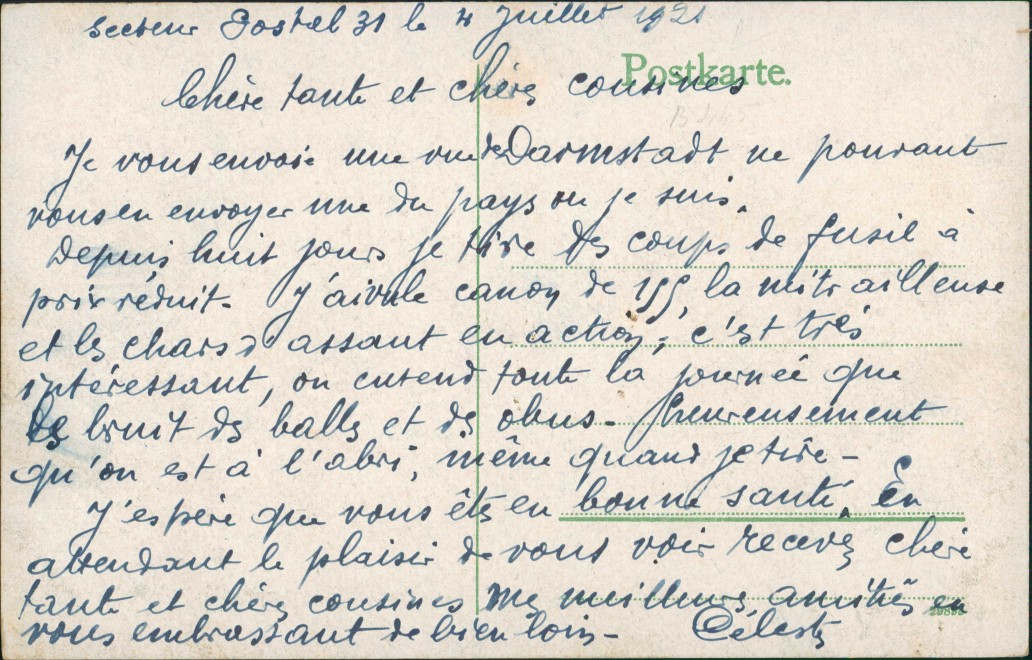 Secteur Postal 31 le 4 Juillet 1921
Postkarte.
Chère tante et chères cousines
Je vous envoie une vue de Darmstadt ne pouvant
vous en envoyer une du pays ou je suis.
Depuis huit jours je tire des coups de fusil à
prix réduit. J'ai vu le canon de 155, la mitrailleuse
et les chars d'assaut en action, c'est très
intéressant, on entend toute la journée que
les bruit des balles et des obus. Heureusement
qu'on est à l'abri, même quand je tire -
J'espère que vous êtes en bonne santé. En
attendant le plaisir de vous voir recevez chère
tante et chères cousines mes meilleures amitiés en
vous embrassant de bien loin - Céleste